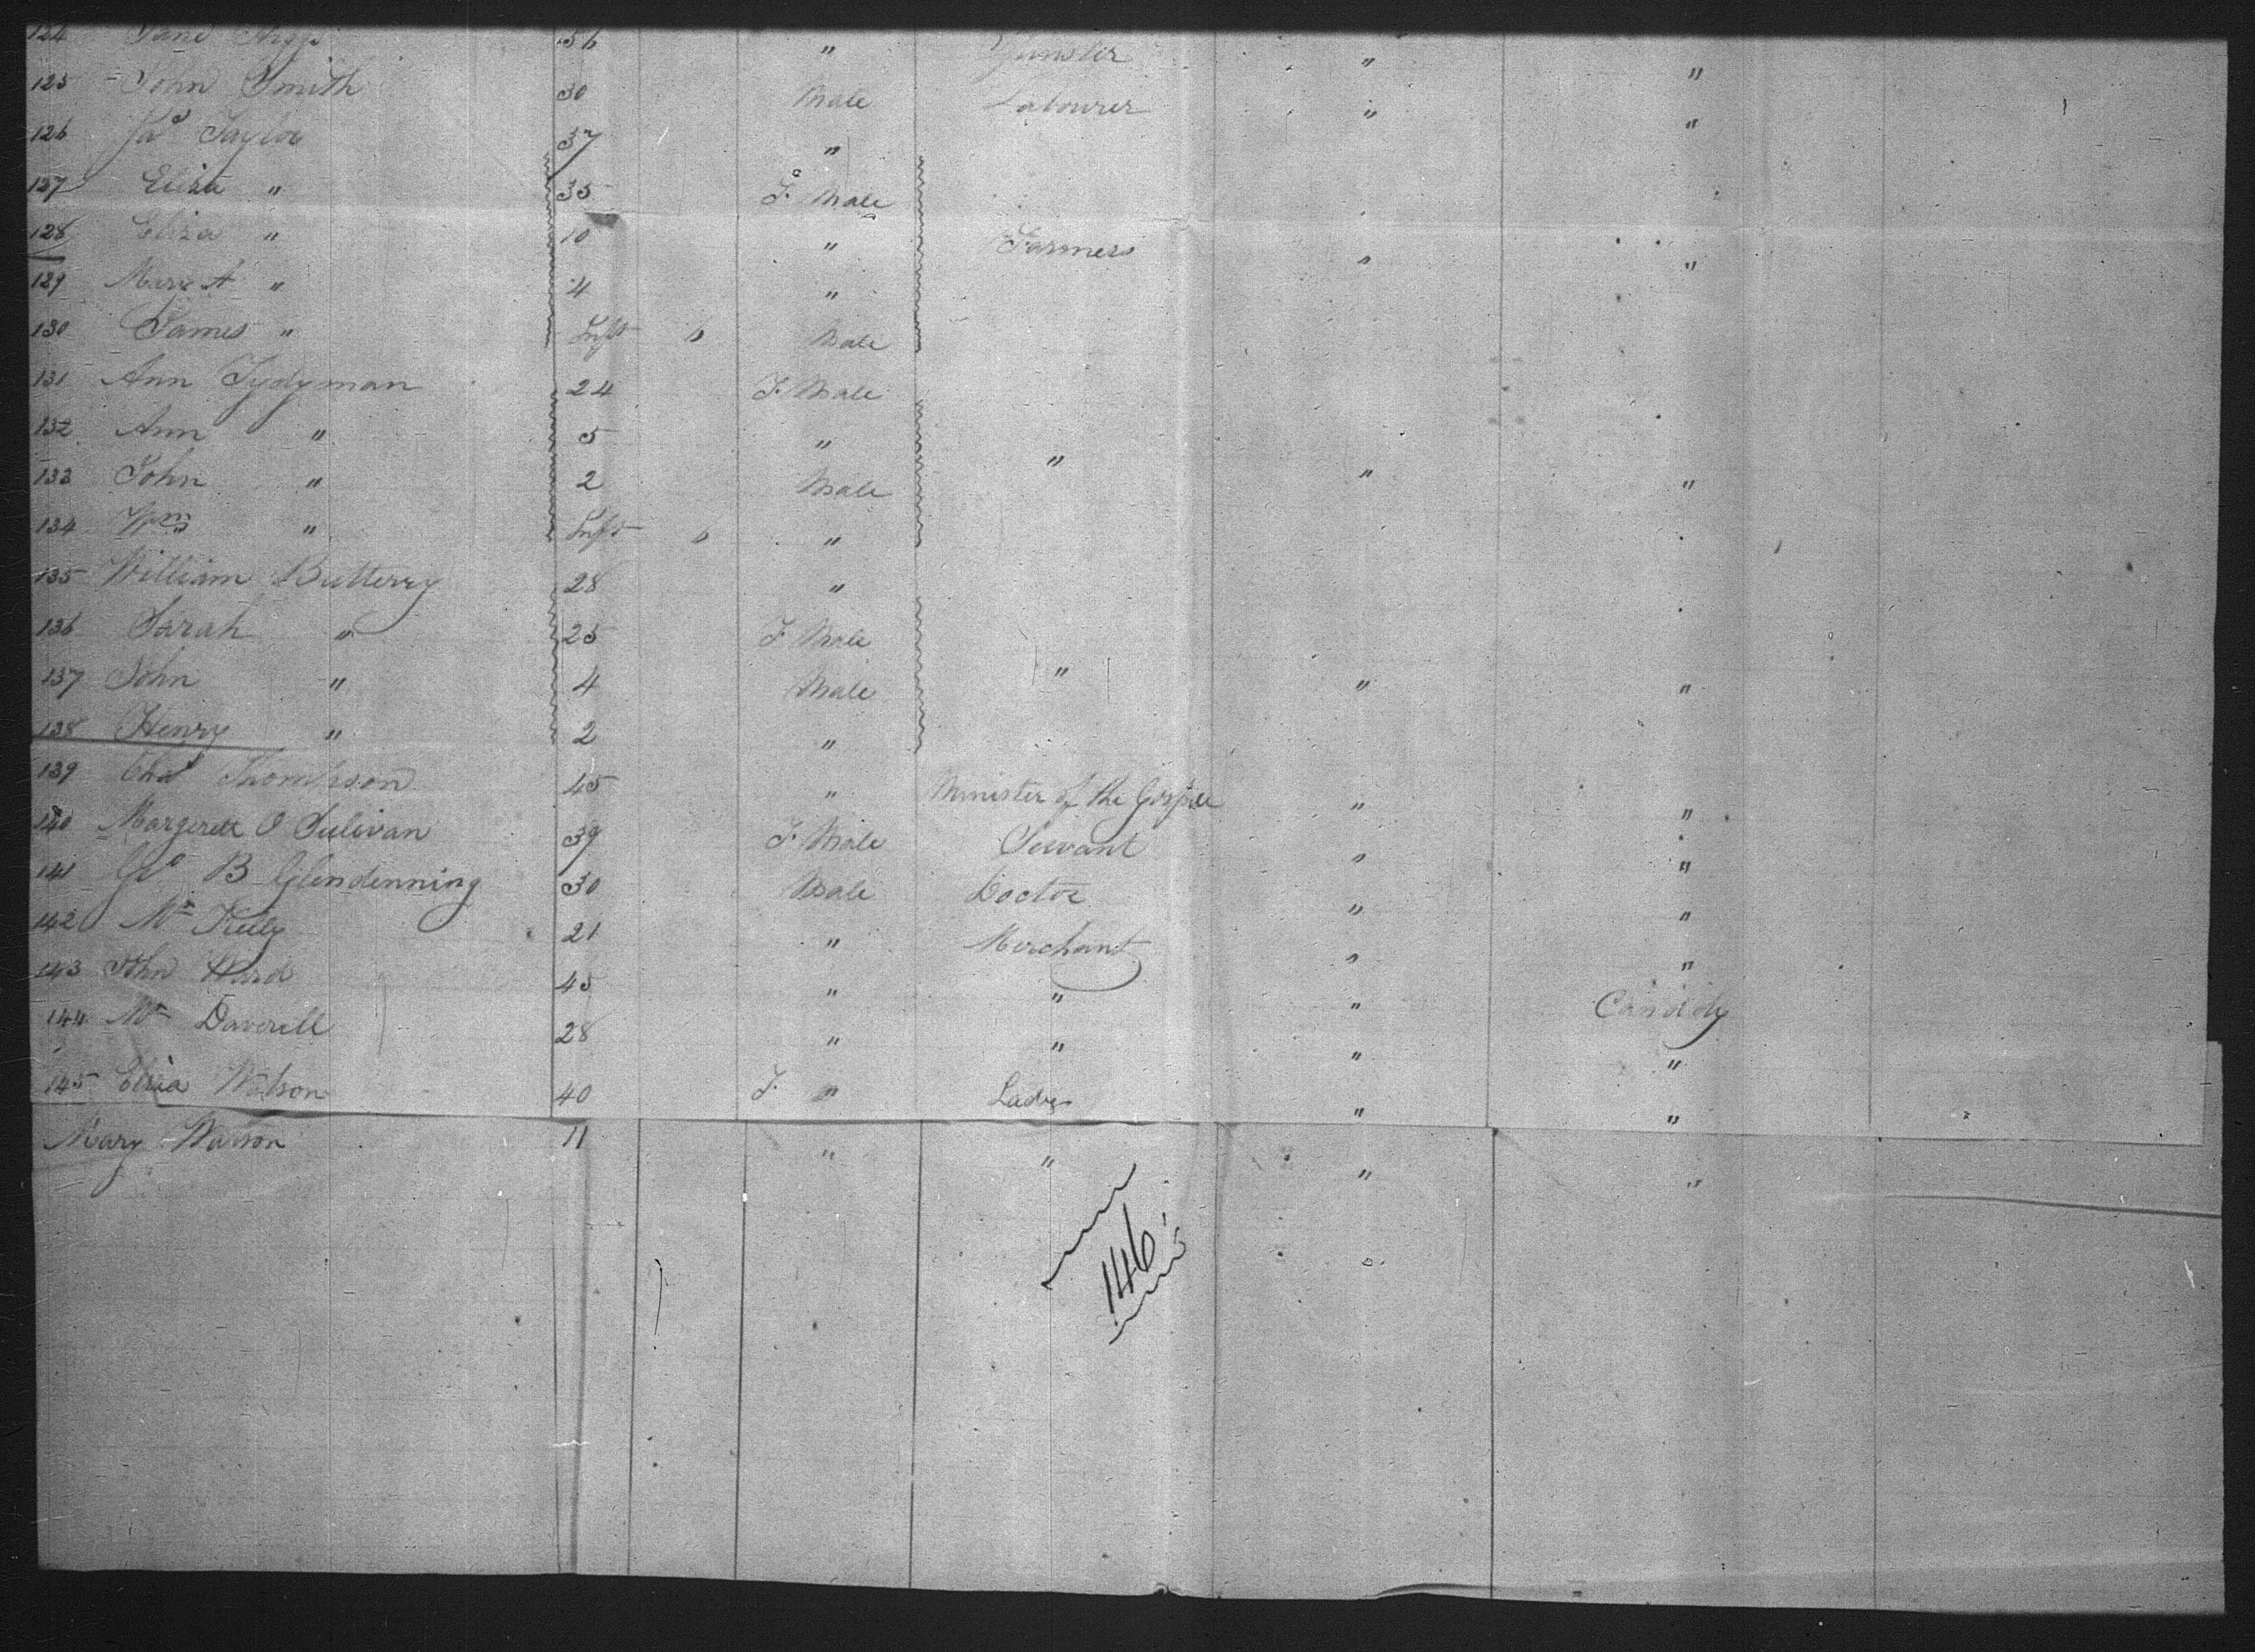 124 Jane 56 " " "
125 John Smith 30 Male Labourer " "
126 Jas Taylor 37 "
127 Eliza " 35 F. Male
128 Eliza " 10 " Farmers " "
129 Mary A " 4 "
130 James " Inft Male
131 Ann Tydyman 24 F. Male
132 Ann " 5 " " " "
133 John " 2 Male
134 Wm " Inft "
135 William Butterry 28 "
136 Sarah " 25 F. Male
137 John " 4 Male " " "
138 Henry " 2 "
139 Chas Thompson 45 " Minister of the Gospel " "
140 Margerett O Sulivan 39 F. Male Servant " "
141 Geo B Glendenning 30 Male Doctor " "
142 Mr Kelly 21 " Merchant " "
143 John Ward 45 " " " Candidy
144 Mr Daverill 28 " " " "
145 Eliza Watson 40 F. " Lady " "
Mary Watson 11 " " " "
146